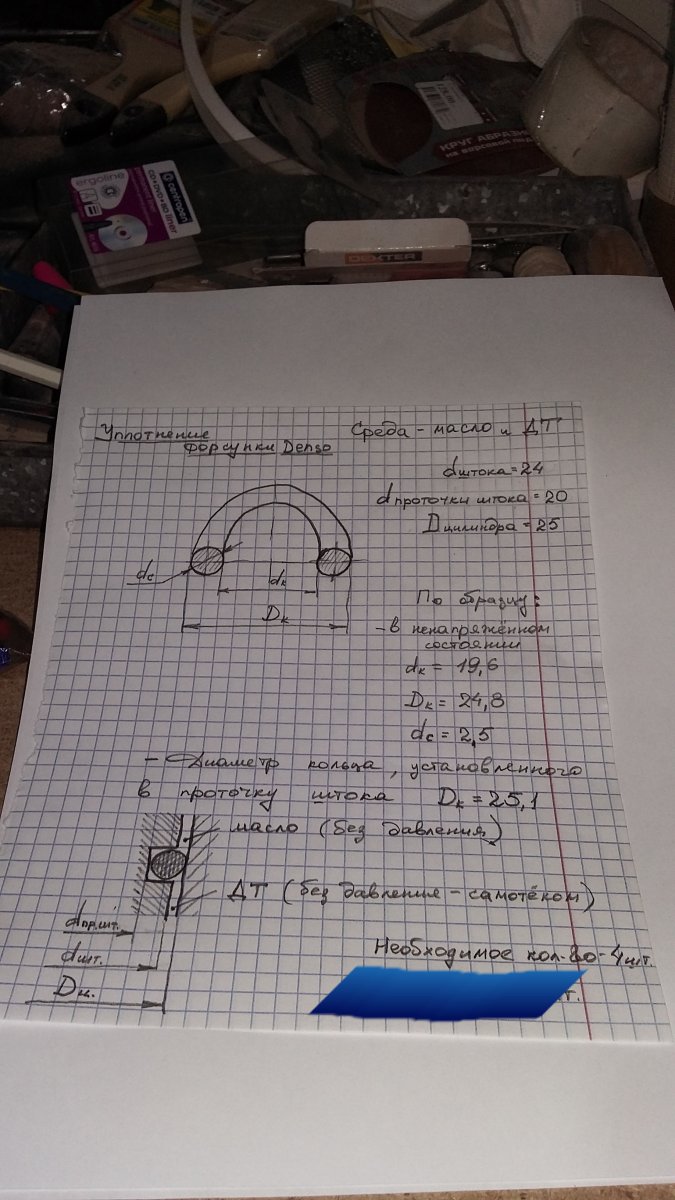 КРУГ АБРАЗИ
на ворсовой под
ergoline
centropen
CD•DVD•BD liner
DEXTER
Уплотнение
форсунки Denso
Среда - масло и ДТ
dштока=24
dпроточки штока=20
Dцилиндра=25
dс
dк
Dк
По образцу:
- в ненапряжённом
состоянии
dк = 19,6
Dк = 24,8
dс = 2,5
- Диаметр кольца, установленного
в проточку штока Dк = 25,1
масло (без давления)
ДТ (без давления - самотёком)
dпр.шт.
dшт.
Dц.
Необходимое кол-во - 4шт.
т.